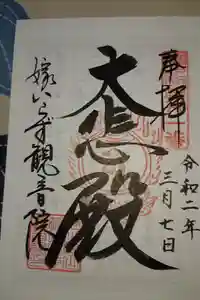 奉拝
令和二年
三月七日
大悲殿
嫁いらず觀音院